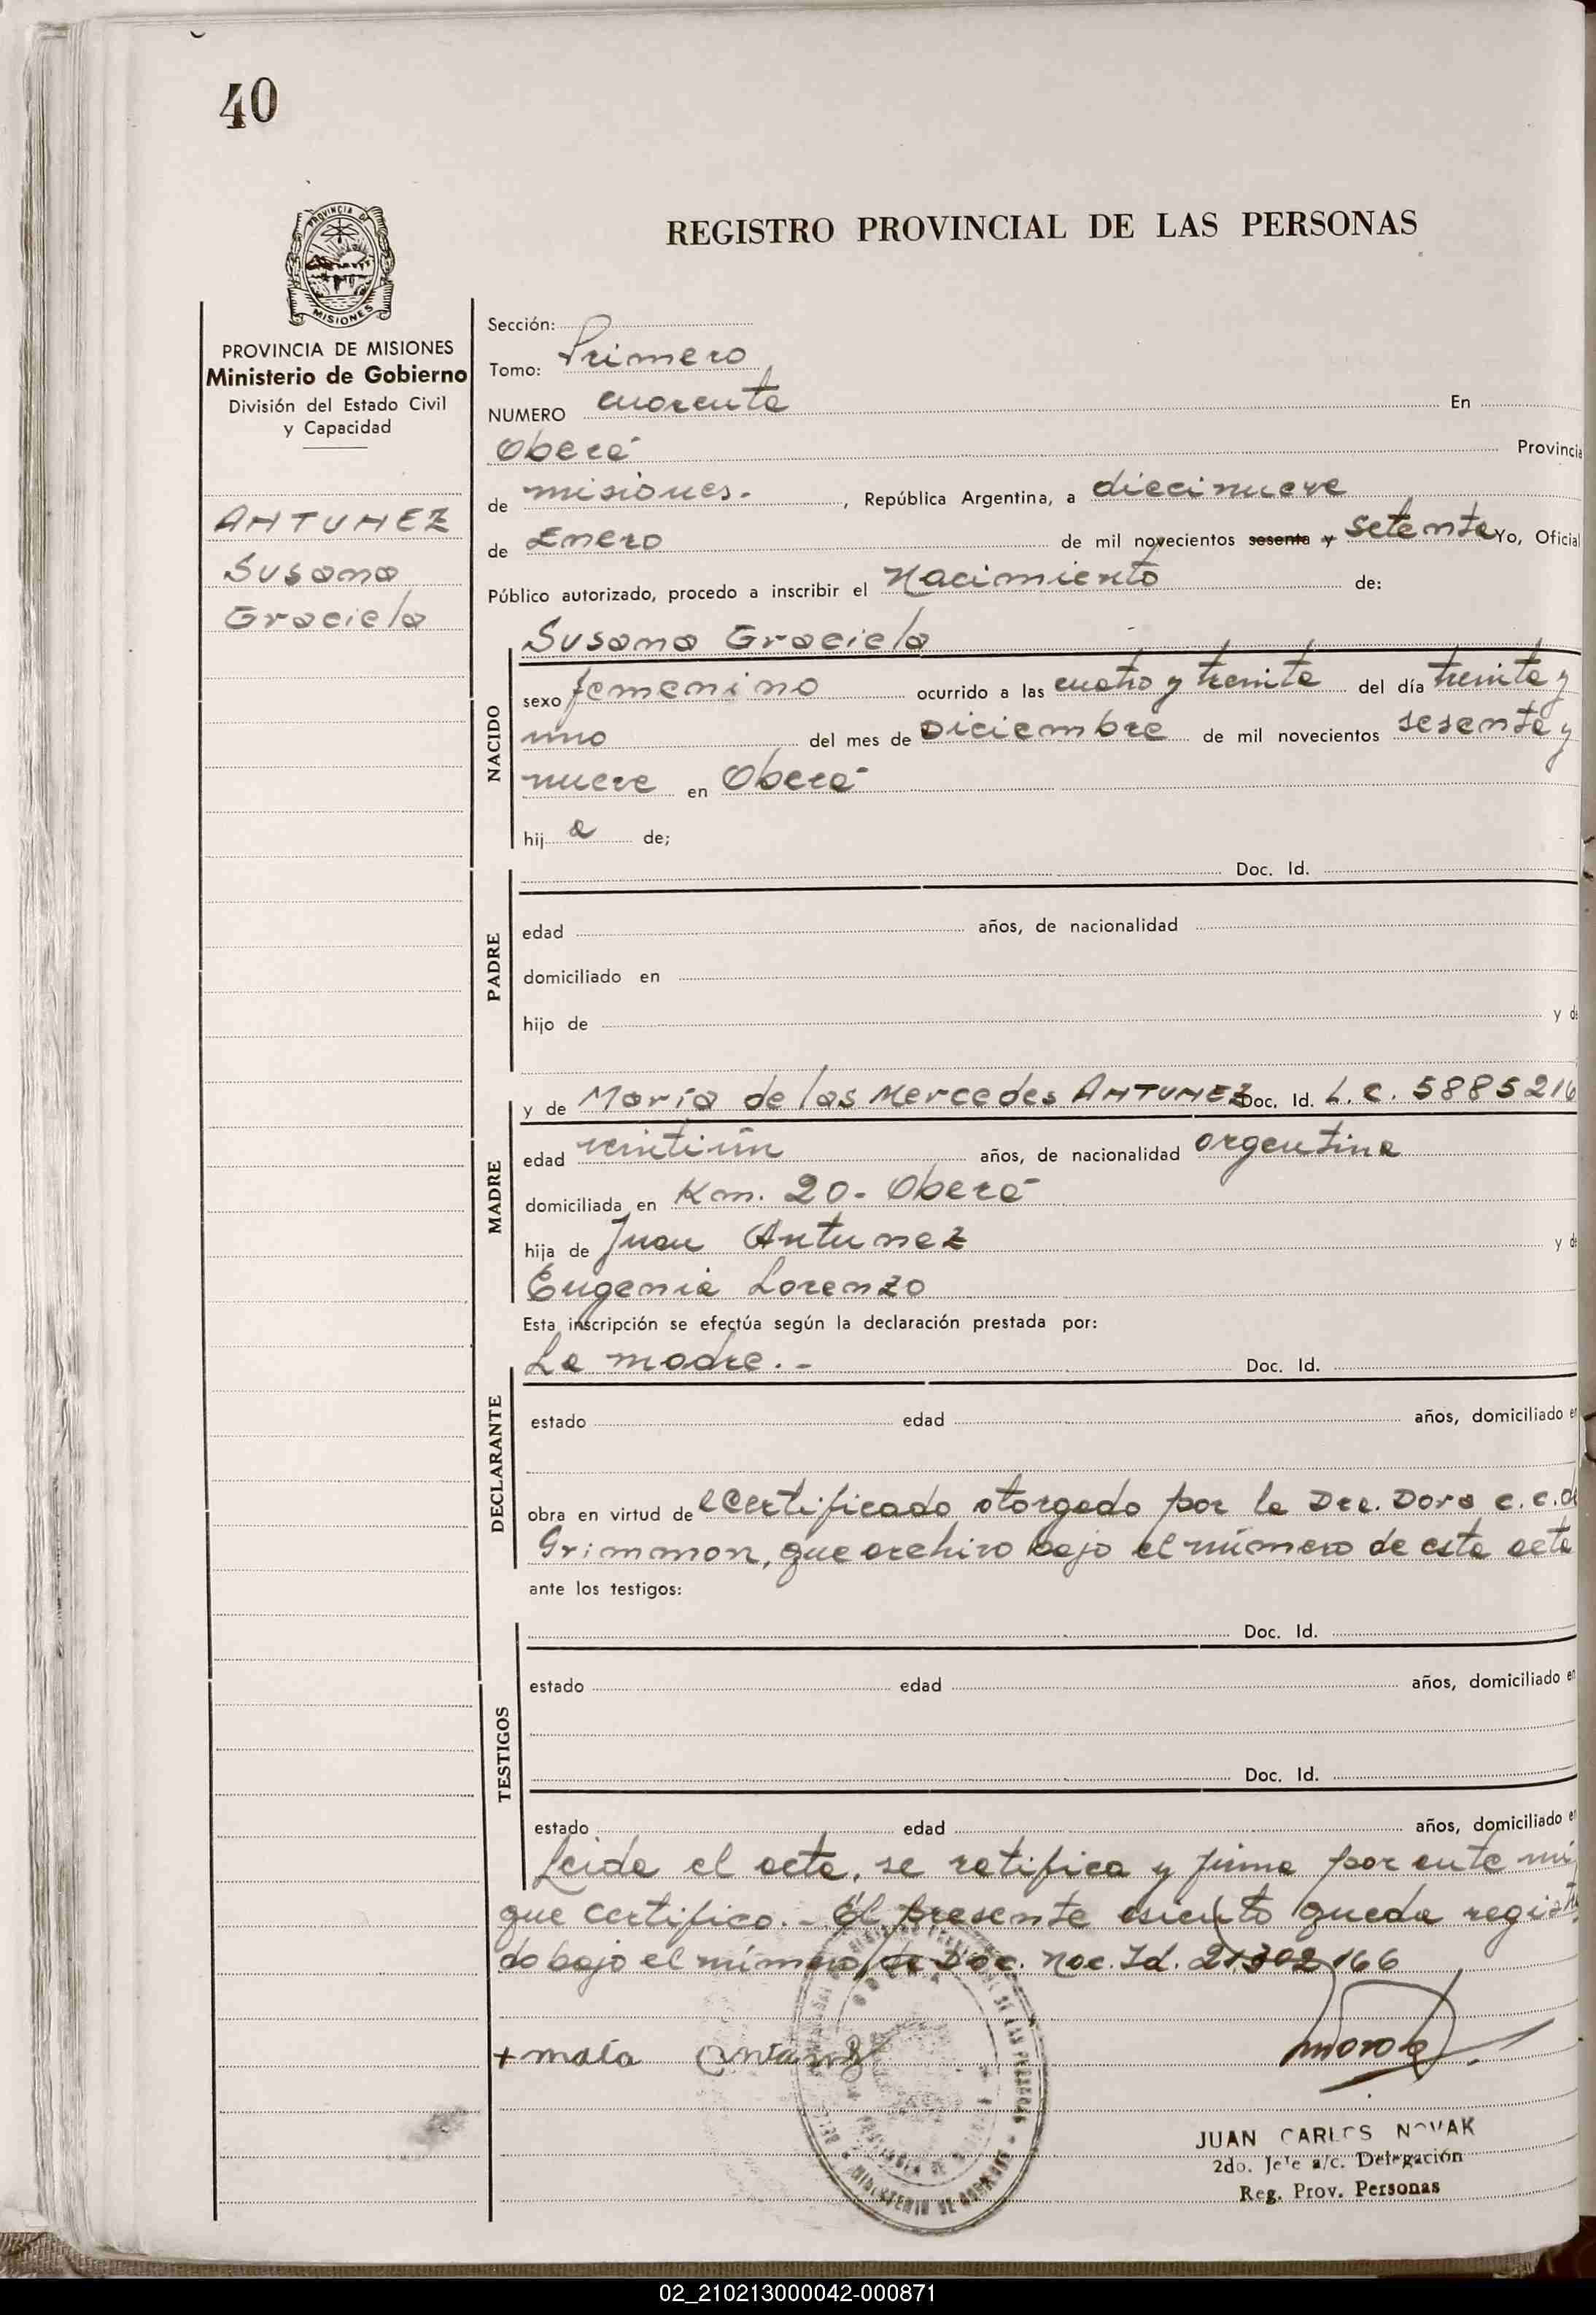 40
PROVINCIA DE
MISIONES
REGISTRO PROVINCIAL DE LAS PERSONAS
PROVINCIA DE MISIONES
Ministerio de Gobierno
División del Estado Civil
y Capacidad
ANTUNEZ
Susana
Graciela
Sección:
Tomo: Primero
NUMERO cuarenta En
Oberá Provincia
de misiones. , República Argentina, a diecinueve
de Enero de mil novecientos sesenta y setenta Yo, Oficial
Público autorizado, procedo a inscribir el Nacimiento de:
NACIDO
Susana Graciela
sexo femenino ocurrido a las cuatro y treinta del día treinta y
uno del mes de Diciembre de mil novecientos sesenta y
nueve en Oberá
hij a de;
PADRE
Doc. Id.
edad años, de nacionalidad
domiciliado en
hijo de y de
MADRE
y de María de las Mercedes ANTUNEZ Doc. Id. L. C. 5885216
edad veintiún años, de nacionalidad argentina
domiciliada en Km. 20 - Oberá
hija de Juan Antunez y de
Eugenia Lorenzo
Esta inscripción se efectúa según la declaración prestada por:
DECLARANTE
La madre. - Doc. Id.
estado edad años, domiciliado en
obra en virtud de certificado otorgado por la Dra. Dora C. C. de
Grimmon, que archivo bajo el número de esta acta
ante los testigos:
TESTIGOS
Doc. Id.
estado edad años, domiciliado en
Doc. Id.
estado edad años, domiciliado en
Leida el acta, se ratifica y firma por ante mi
que certifico. - El presente asiento queda registra
do bajo el número de Doc. Nac. Id. 21.302.166
+ maia
JUAN CARLOS NOVAK
2do. Jefe a/c. Delegación
Reg. Prov. Personas
02_210213000042-000871